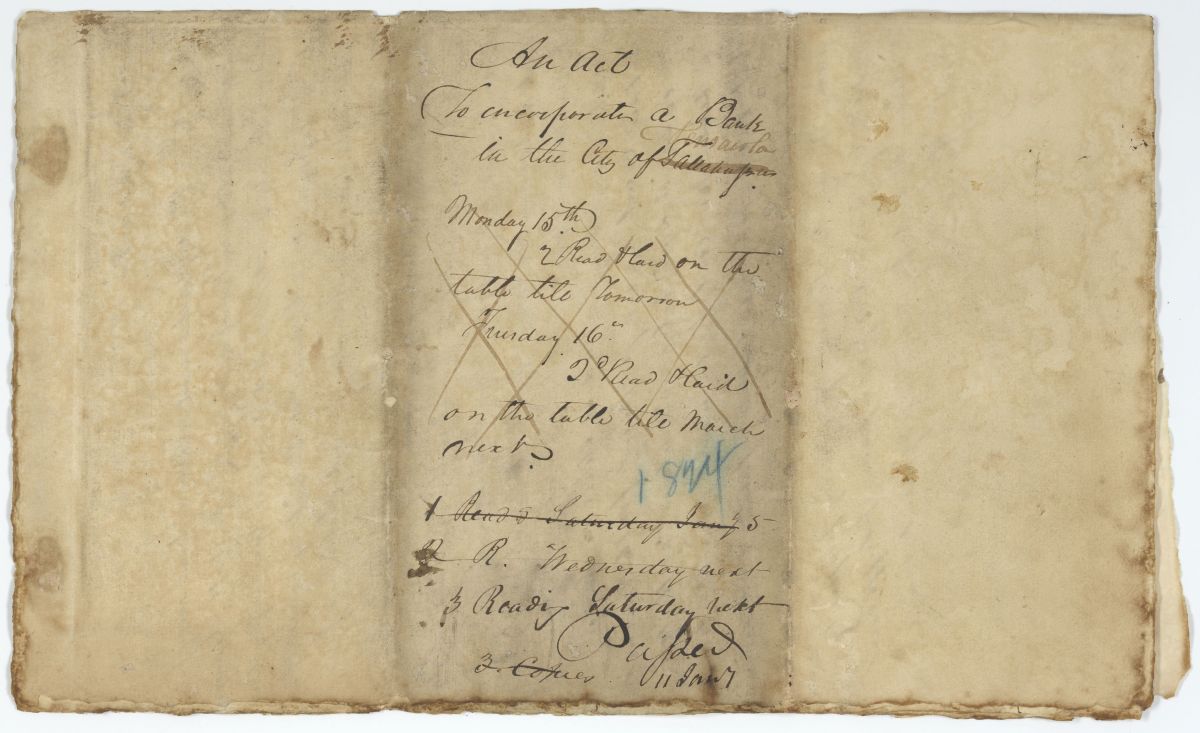 An Act
To incorporate a Bank
Pensacola
in the City of Tallahassee
Monday 15th
2 Read & laid on the
table till Tomorrow
Tuesday 16th
2d Read & laid
on the table till March
next.
1824
1 Read Saturday Jany 5
2 R. Wednesday next
3 Readig Saturday next
Passed
3 Copies 11 Jany